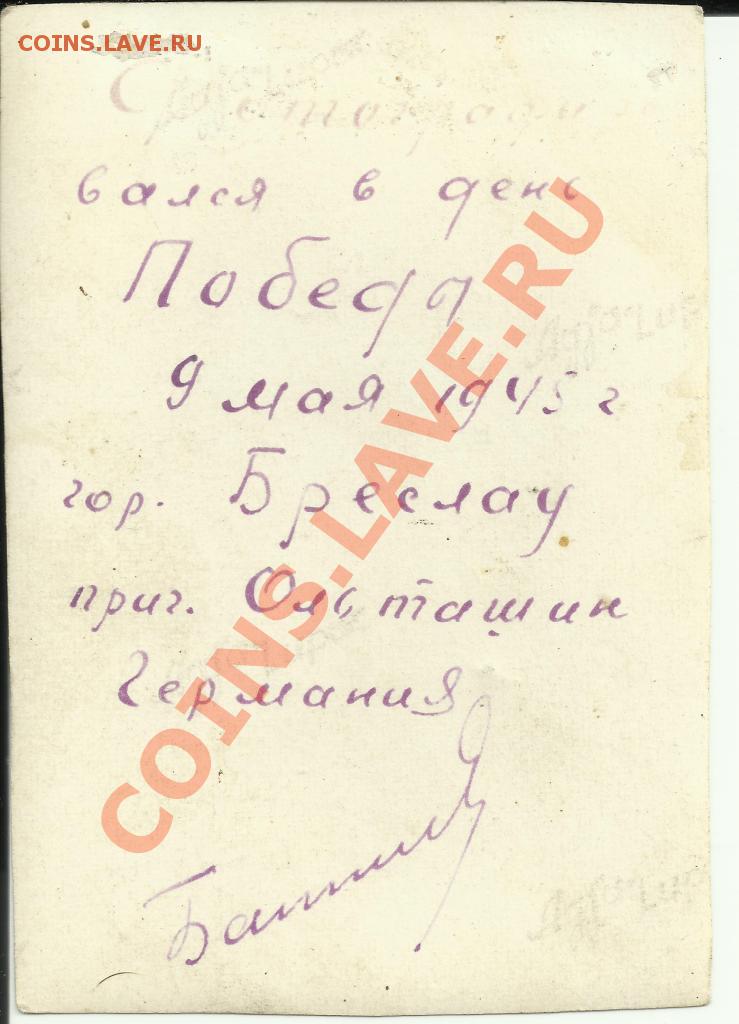 COINS.LAVE.RU
Фотографиро
вался в день
Победы
9 мая 1945 г
гор. Бреслау
приг. Ольташин
Германия
COINS.LAVE.RU